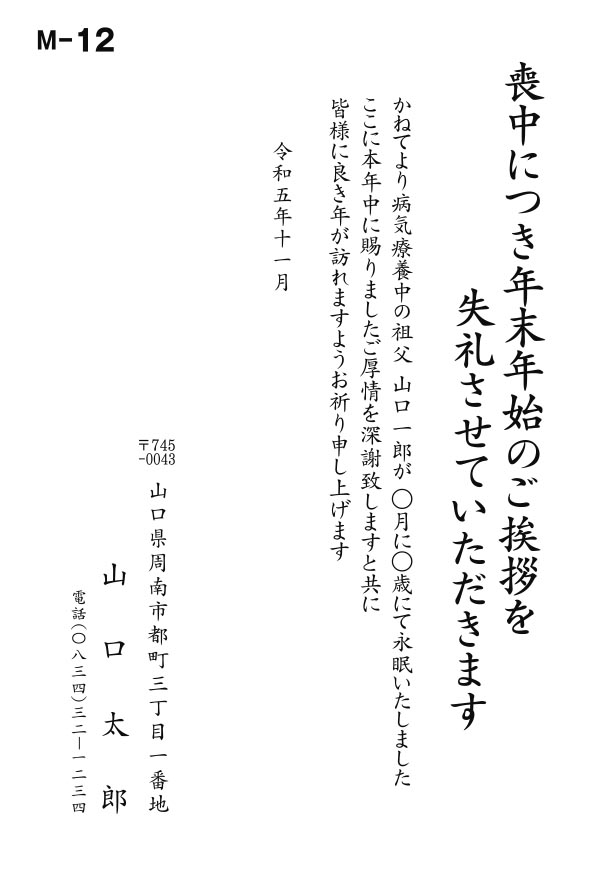 M-12
喪中につき年末年始のご挨拶を
失礼させていただきます
かねてより病気療養中の祖父 山口一郎が 〇月に〇歳にて永眠いたしました
ここに本年中に賜りましたご厚情を深謝致しますと共に
皆様に良き年が訪れますようお祈り申し上げます
令和五年十一月
〒745
-0043
山口県周南市都町三丁目一番地
山口太郎
電話(〇八三四)三二―一二三四